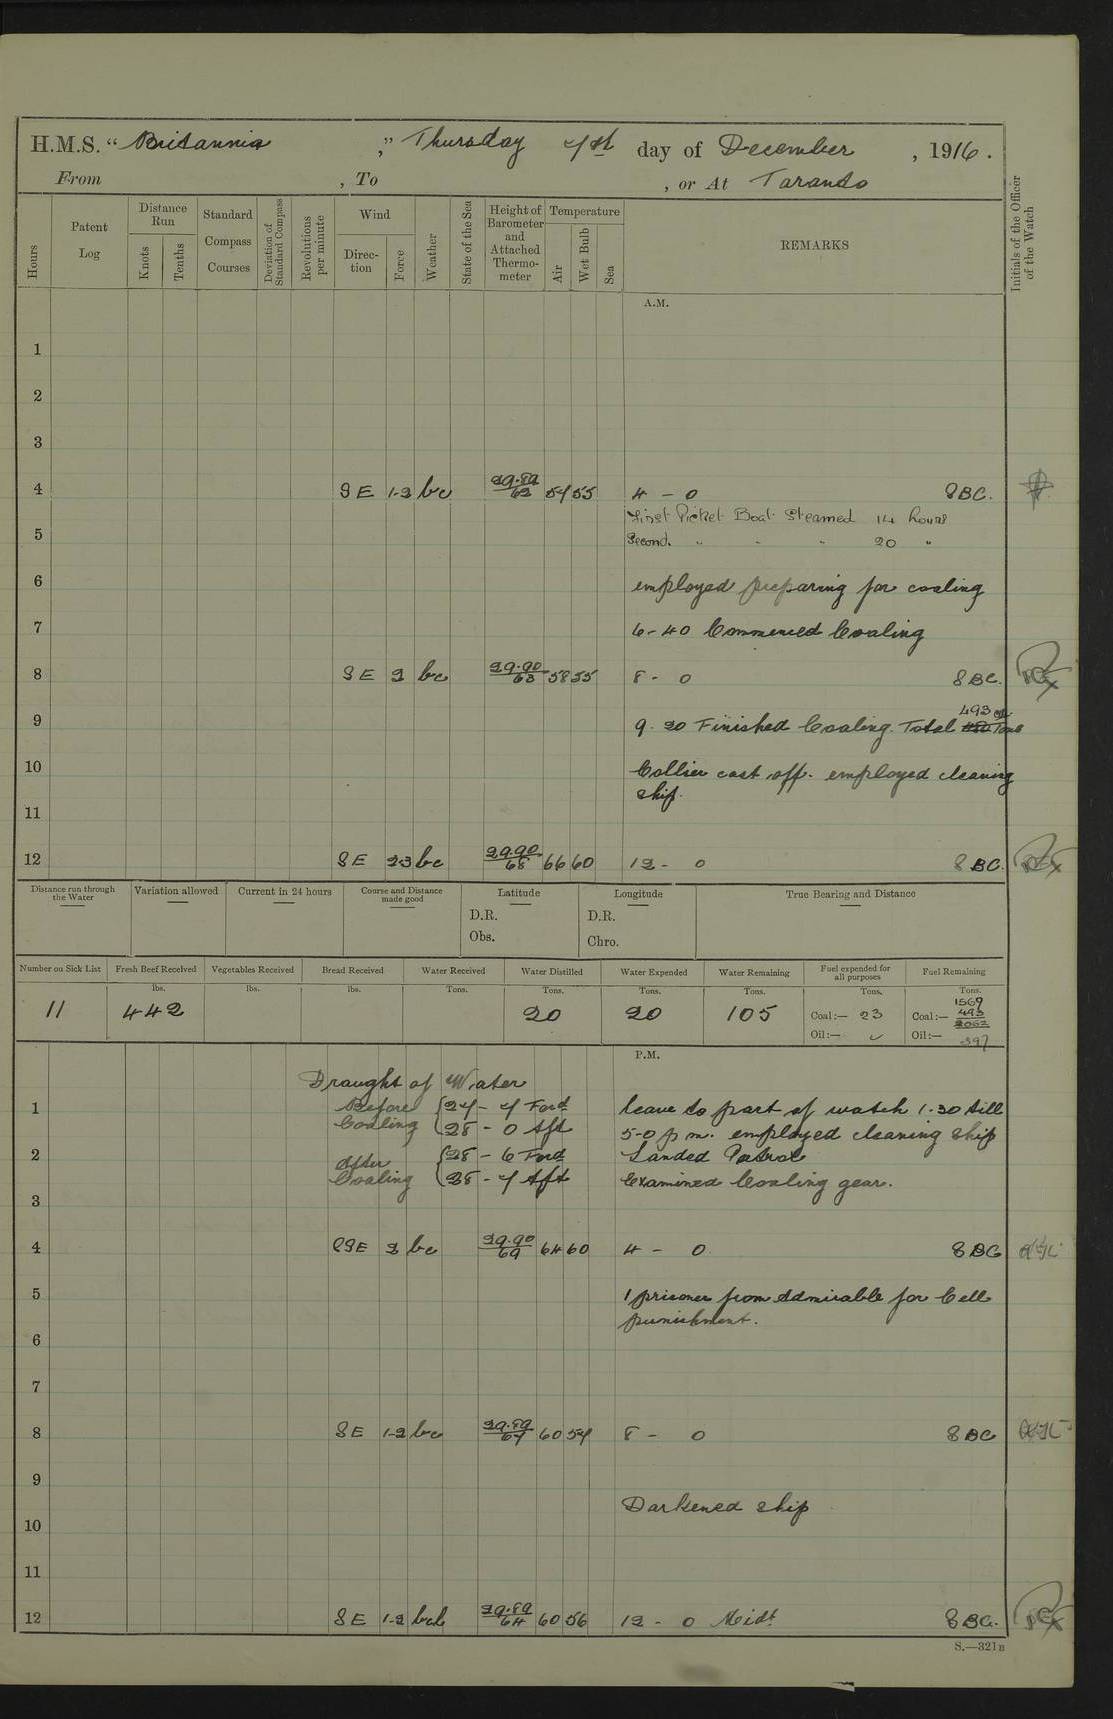 H.M.S. "Britannia," Thursday 7th day of December, 1916.
From , To , or At Taranto
Hours
Patent Log
Distance Run
Knots
Tenths
Standard Compass Courses
Deviation of Standard Compass
Revolutions per minute
Wind
Direction
Force
Weather
State of the Sea
Height of Barometer and Attached Thermometer
Temperature
Air
Wet Bulb
Sea
REMARKS
Initials of the Officer of the Watch
A.M.
1
2
3
4 SE 1-2 bc 29.89/62 57 55 4 - 0 8BC.
First Picket Boat Steamed 14 hours
5 Second. " " " 20 "
6 employed preparing for coaling
7 6-40 Commenced Coaling
8 SE 2 bc 29.90/63 58 55 8 - 0 8BC.
493
9 9.20 Finished Coaling. Total Tons
10 Collier cast off. employed cleaning
ship.
11
12 SE 23 bc 29.90/68 66 60 12 - 0 8BC.
Distance run through the Water
Variation allowed
Current in 24 hours
Course and Distance made good
Latitude
D.R.
Obs.
Longitude
D.R.
Chro.
True Bearing and Distance
Number on Sick List
Fresh Beef Received
Vegetables Received
Bread Received
Water Received
Water Distilled
Water Expended
Water Remaining
Fuel expended for all purposes
Fuel Remaining
lbs. lbs. lbs. Tons. Tons. Tons. Tons. Tons. Tons.
11 442 20 20 105 Coal:— 23 Coal:— 1569
493
2062
Oil:— Oil:— 397
P.M.
Draught of Water
1 Before Coaling { 27 - 7 Ford leave to part of watch 1.30 till
28 - 0 Aft 5-0 p m. employed cleaning ship
2 After Coaling { 28 - 6 Ford Landed Patrol
28 - 7 Aft Examined Coaling gear.
3
4 SSE 2 bc 29.90/69 64 60 4 - 0 8BC
5 1 prisoner from Admirable for Cell
punishment.
6
7
8 SE 1-2 bc 29.89/67 60 57 8 - 0 8BC
9
Darkened ship
10
11
12 SE 1-2 bcb 29.89/64 60 56 12 - 0 Midt. 8BC.
S.—321B